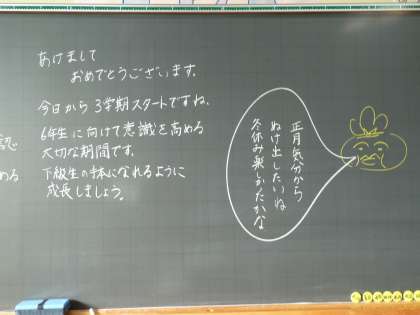 あけまして
おめでとうございます。
今日から3学期スタートですね。
6年生に向けて意識を高める
大切な期間です。
下級生の手本になれるように
成長しましょう。
める
正月気分から
ぬけ出したいね
冬休み楽しかたかな